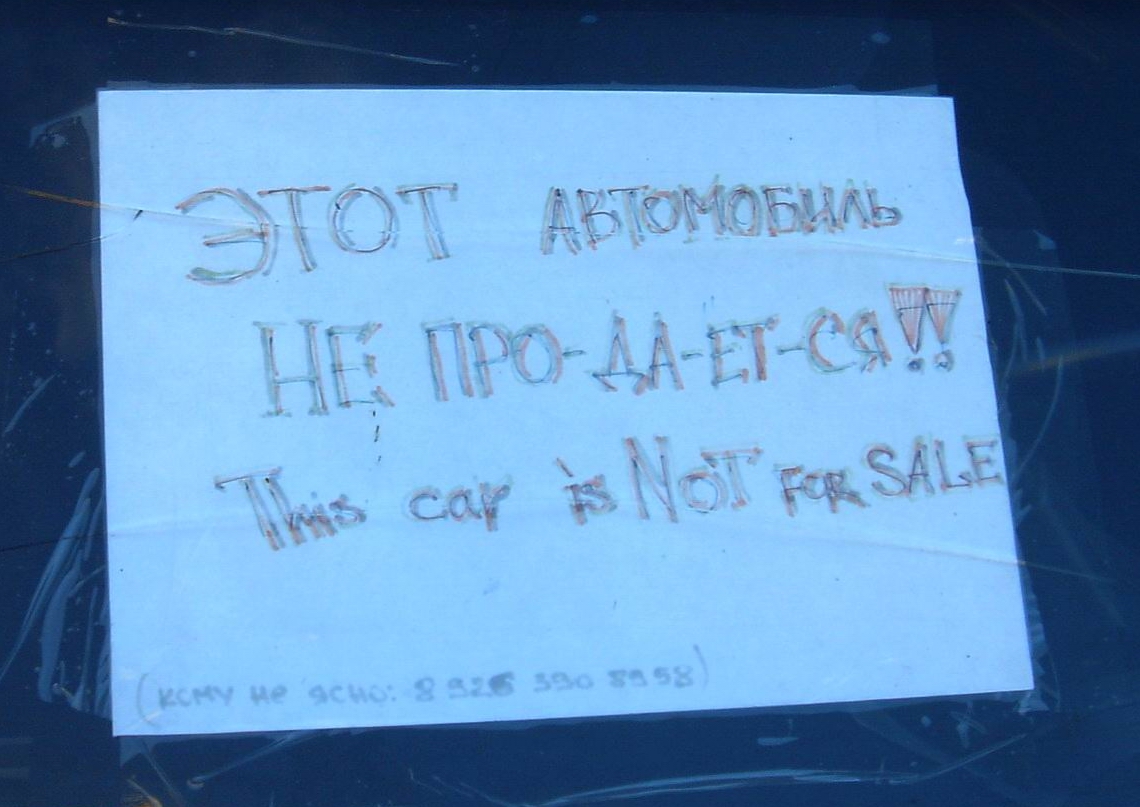 ЭТОТ АВТОМОБИЛЬ
НЕ ПРО-ДА-ЕТ-СЯ!!
This car is NOT FOR SALE
(кому не ясно: 8 926 390 8958)